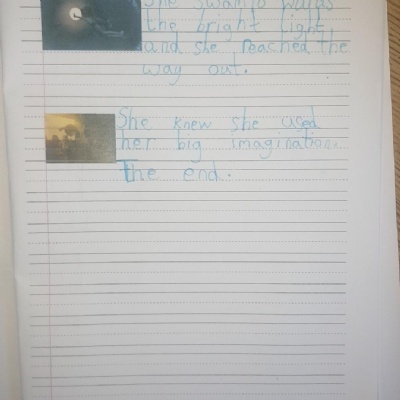 She swam to wards
the bright light
and she reached the
way out.
She knew she used
her big imagination.
The end.